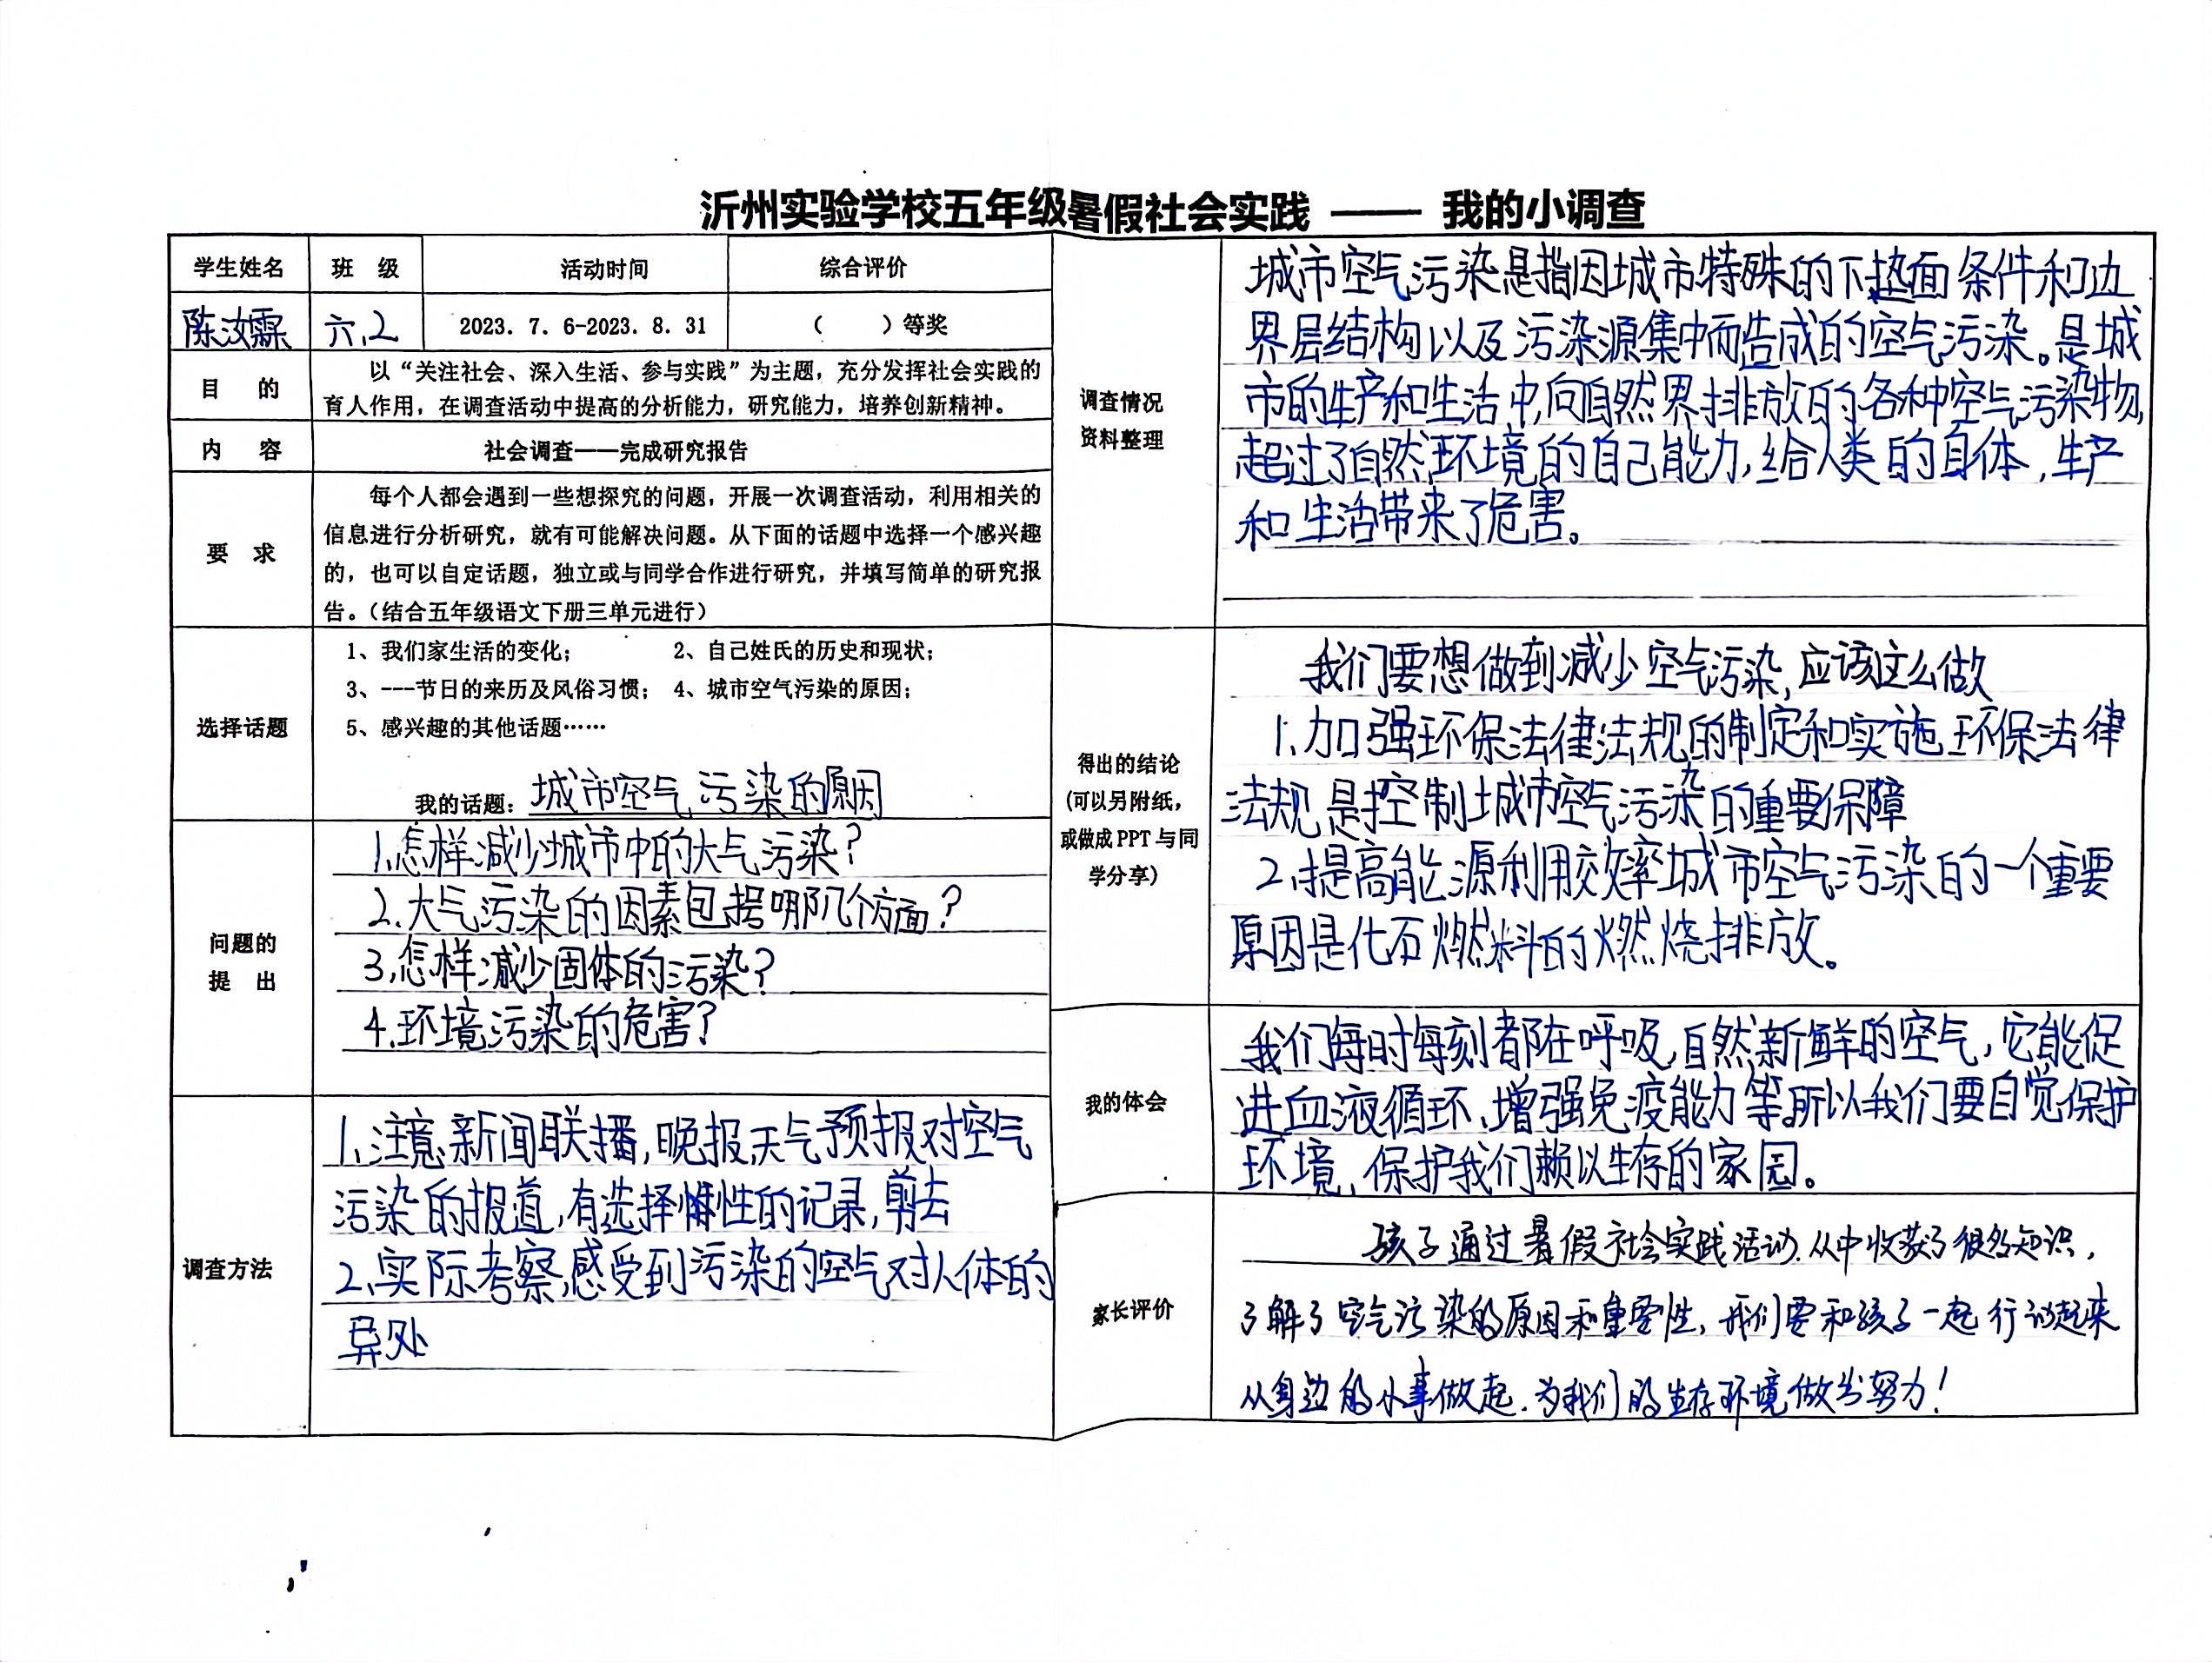 沂州实验学校五年级暑假社会实践 —— 我的小调查
学生姓名 班 级 活动时间 综合评价
陈汝霖 六.2 2023. 7. 6-2023. 8. 31 （ ）等奖
目 的
以“关注社会、深入生活、参与实践”为主题，充分发挥社会实践的
育人作用，在调查活动中提高的分析能力，研究能力，培养创新精神。
内 容
社会调查——完成研究报告
要 求
每个人都会遇到一些想探究的问题，开展一次调查活动，利用相关的
信息进行分析研究，就有可能解决问题。从下面的话题中选择一个感兴趣
的，也可以自定话题，独立或与同学合作进行研究，并填写简单的研究报
告。（结合五年级语文下册三单元进行）
选择话题
1、我们家生活的变化； 2、自己姓氏的历史和现状；
3、---节日的来历及风俗习惯； 4、城市空气污染的原因；
5、感兴趣的其他话题……
我的话题：城市空气污染的原因
问题的
提 出
1.怎样减少城市中的大气污染？
2.大气污染的因素包括哪几个方面？
3.怎样减少固体的污染？
4.环境污染的危害？
调查方法
1、注意新闻联播，晚报，天气预报对空气
污染的报道，有选择性的记录，剪去
2、实际考察，感受到污染的空气对人体的
异处
调查情况
资料整理
城市空气污染是指因城市特殊的下垫面条件和边
界层结构以及污染源集中而造成的空气污染。是城
市的生产和生活中，向自然界排放的各种空气污染物，
超过了自然环境的自己能力，给人类的身体，生产
和生活带来了危害。
得出的结论
(可以另附纸，
或做成 PPT 与同
学分享)
我们要想做到减少空气污染，应该这么做
1、加强环保法律法规的制定和实施环保法律
法规是控制城市空气污染的重要保障
2、提高能源利用效率城市空气污染的一个重要
原因是化石燃料的燃烧排放。
我的体会
我们每时每刻都在呼吸，自然新鲜的空气，它能促
进血液循环、增强免疫能力等。所以我们要自觉保护
环境，保护我们赖以生存的家园。
家长评价
孩子通过暑假社会实践活动，从中收获了很多知识，
了解了空气污染的原因和重要性，我们要和孩子一起行动起来
从身边的小事做起，为我们的生存环境做出努力！